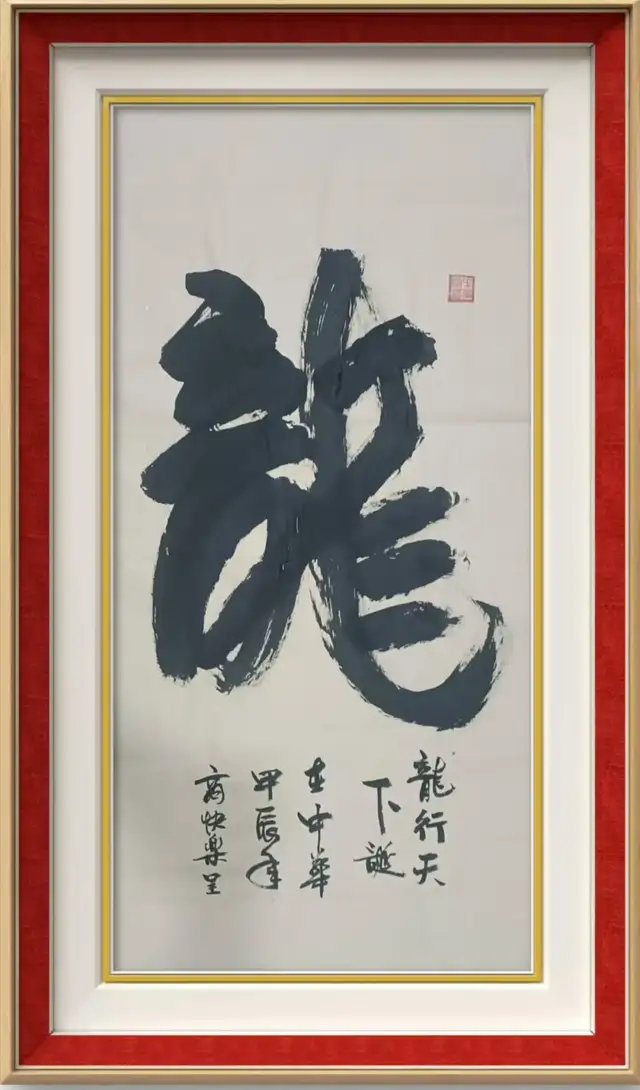 龍
龍行天
下誕
在中華
甲辰年
商快樂呈